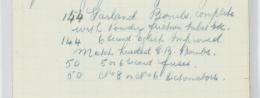 154 Garland Bombs, complete
with Powder friction tubes etc.
144 6 second Improvised
Match headed G.P. Bombs.
50 5 or 6 second fuses.
50 No 8 or No 6 Detonators.